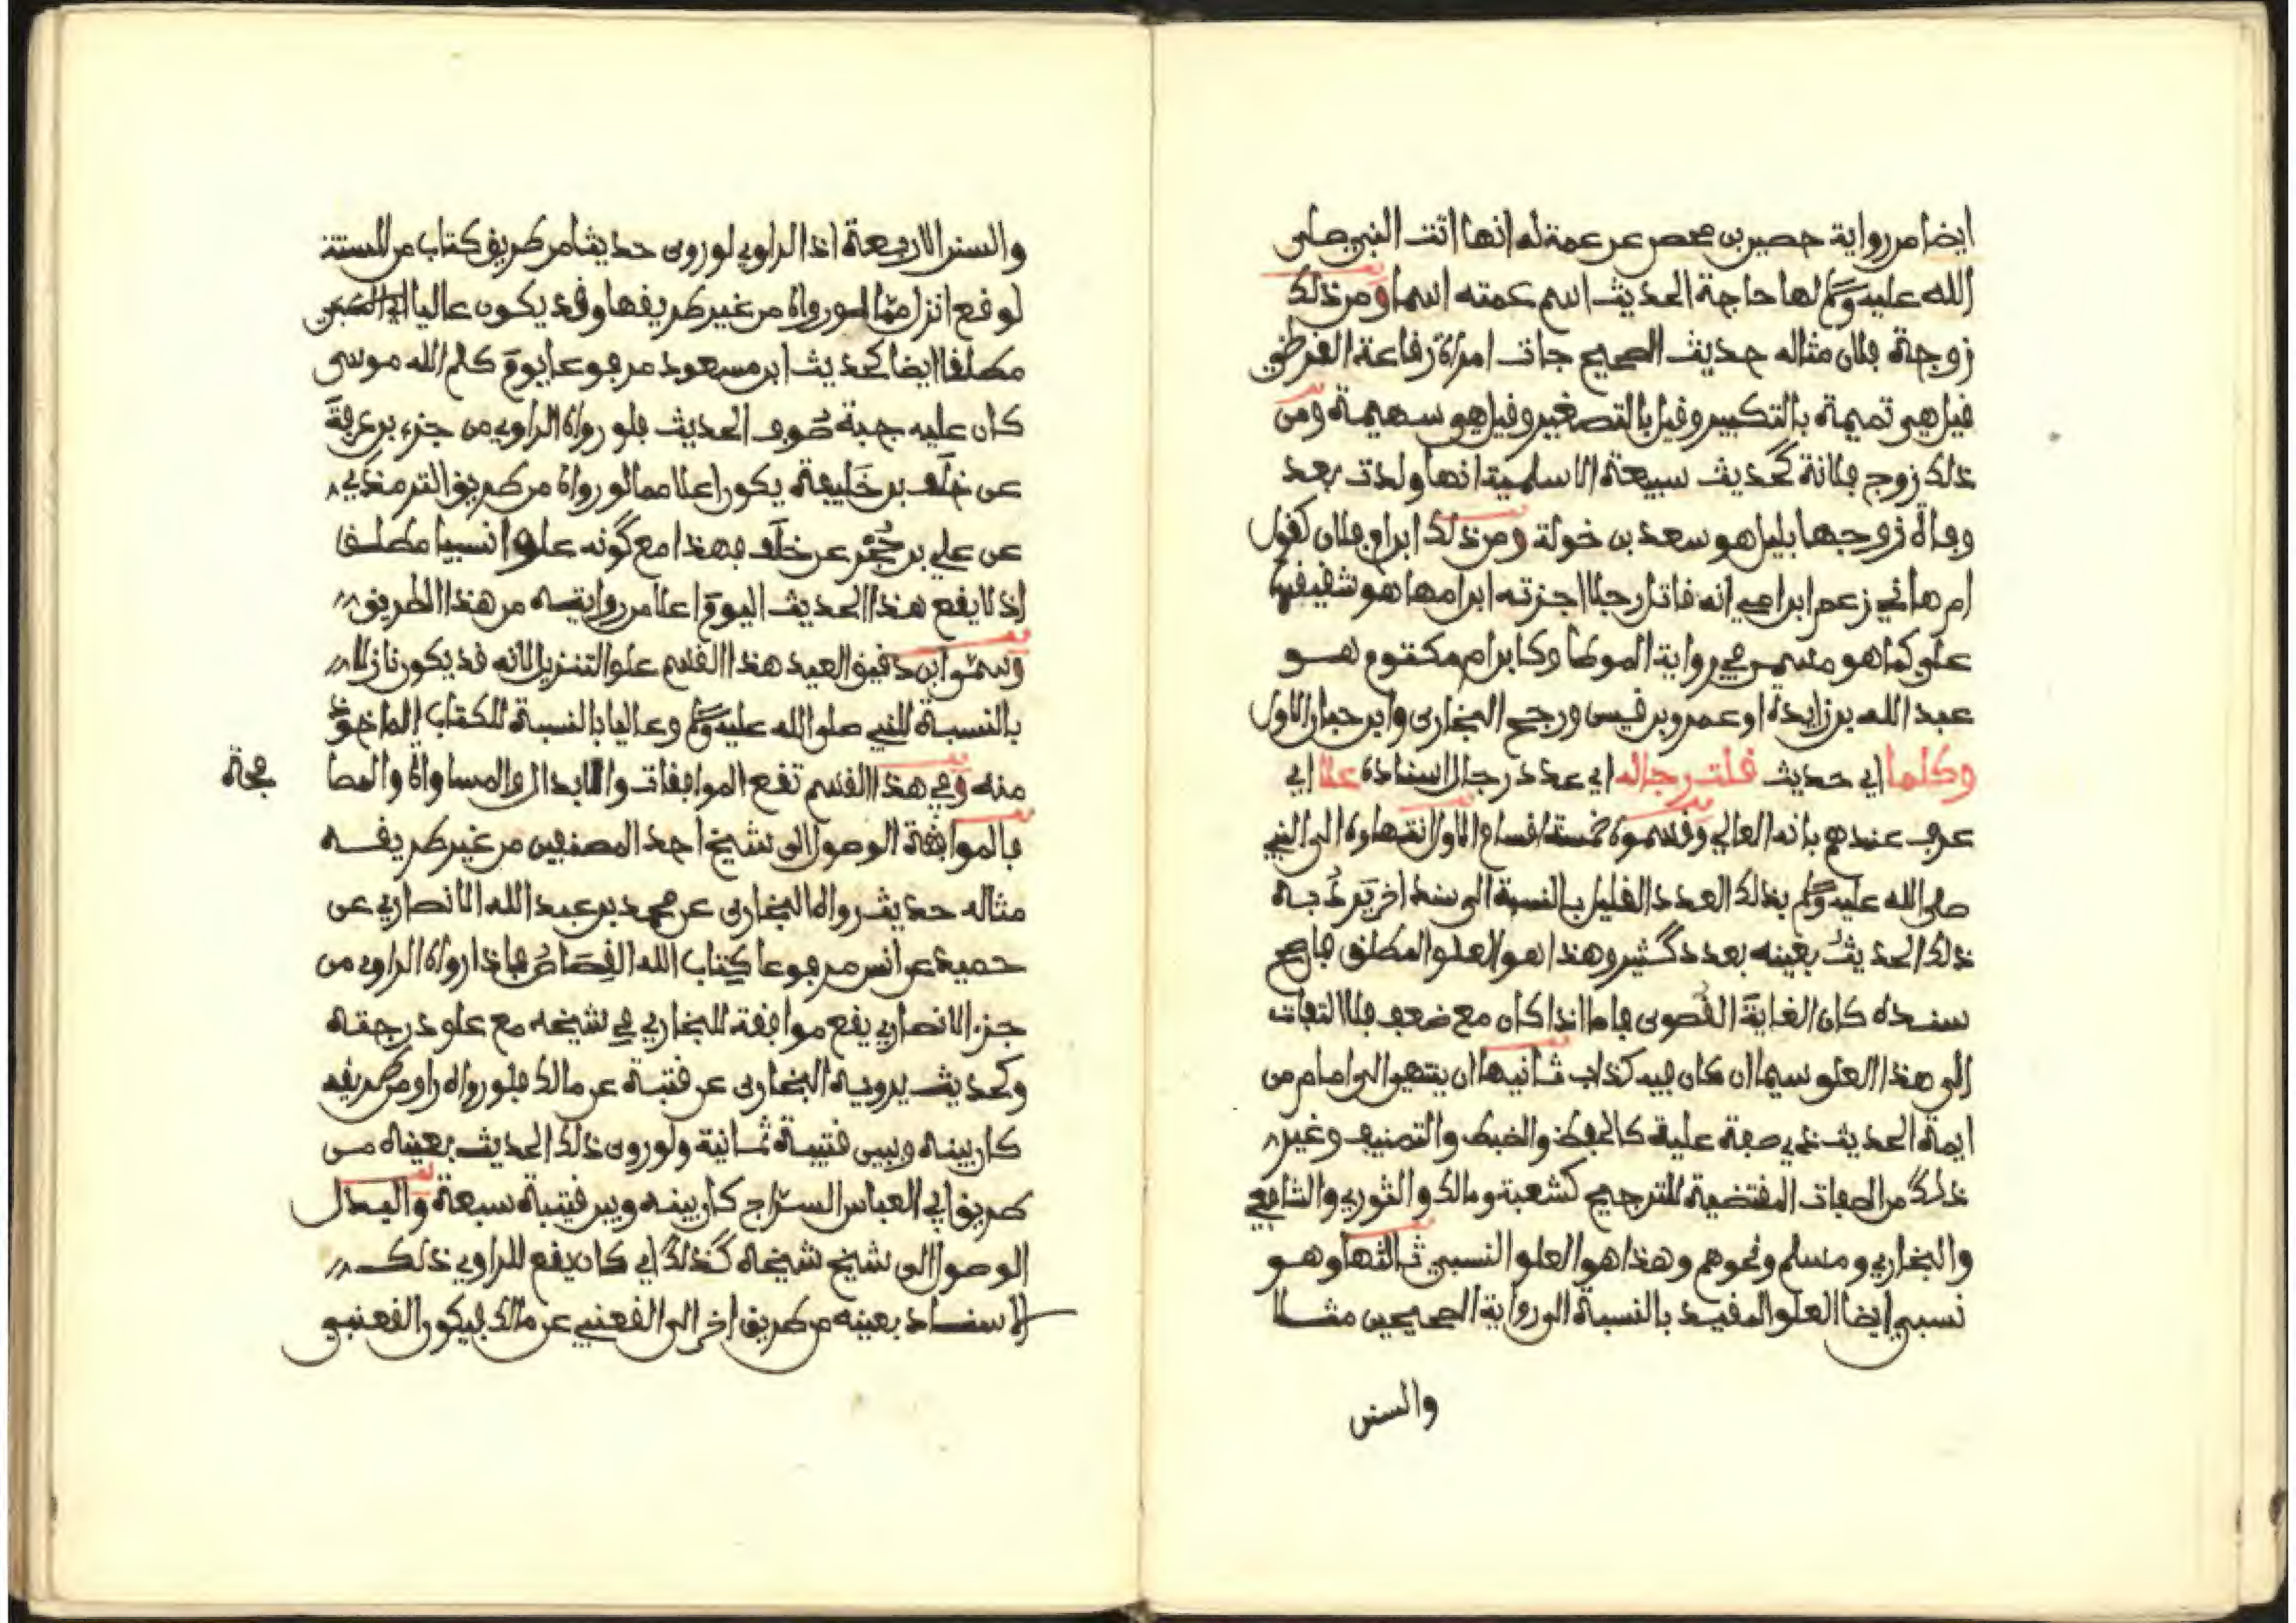 ايضا من رواية حصين بن محصن عن عمة له انها اتت النبي صلى
الله عليه وسلم لها حاجة الحديث اسم عمته اسما ومن ذلك
زوجة فلان مثاله حديث الصحيح جات امراة رفاعة القرظي
قيل هي تميمة بالتكبير وقيل بالتصغير وقيل هي سهيمة ومن
ذلك زوج فلانة كحديث سبيعة الاسلمية انها ولدت بعد
وفاة زوجها بليل هو سعد بن خولة ومن ذلك ابن ام فلان كقول
ام هاني زعم ابن امي انه قاتل رجلا اجرته ابن امها هو شقيقها
علي كما هو مسمى في رواية الموطا وكابن ام مكتوم هو
عبد الله بن زايدة او عمرو بن قيس ورجح البخاري وابن حبان الاول
وكلما اي حديث قلت رجاله اي عدد رجال اسناده علا اي
عرف عندهم بانه العالي وقسموه خمسة اقسام الاول انتهاوه الى النبي
صلى الله عليه وسلم بذلك العدد القليل بالنسبة الى سند اخر يَرِدُ به
ذلك الحديثُ بعينه بعدد كثير وهذا هو العلو المطلق فان صح
سنده كان الغايةَ القُصوى فاما اذا كان مع ضعف فلا التفات
الى هذا العلو سيما ان كان فيه كذاب ثانيها ان ينتهي الى امام من
ايمة الحديث ذي صفة علية كالحفظ والضبط والتصنيف وغير
ذلك من الصفات المقتضية للترجيح كشعبة ومالك والثوري والشافعي
والبخاري ومسلم ونحوهم وهذا هو العلو النسبي ثالثها وهو
نسبي ايضا العلو المفيد بالنسبة الى رواية الصحيحين مثلا
والسنن
والسنن الاربعة اذ الراوي لو روى حديثا من طريق كتاب من الستة
لوقع انزل مما لو رواه من غير طريقها وقد يكون عاليا
مطلقا ايضا كحديث ابن مسعود مرفوعا يوم كلم الله موسى
كان عليه جبة صُوف الحديث فلو رواه الراوي من جزء بن عرفة
عن خَلَف بن خَليفة يكون اعلا مما لو رواه من طريق الترمذي
عن علي بن حُجْر عن خلَف فهذا مع كونه علوا نسبيا مطلق
اذ لا يقع هذا الحديث اليوم اعلا من روايته من هذا الطريق
وسمَّى ابن دقيق العيد هذا القسم علو التنزيل لانه قد يكون نازلا
بالنسبة للنبي صلى الله عليه وسلم وعاليا بالنسبة للكتاب الماخوذ
منه وفي هذا القسم تقع الموافقات والابدال والمساواة والمصا
فحة
فالموافقة الوصول الى شيخ احد المصنفين من غير طريقه
مثاله حديث رواه البخاري عن محمد بن عبد الله الانصاري عن
حميد عن انس مرفوعا كِتاب الله القِصَاصُ فاذا رواه الراوي من
جزء الانصاري يقع موافقة للبخاري في شيخه مع علو درجته
وكحديث يرويه البخاري عن قتيبة عن مالك فلو رواه راو من طريقه
كان بينه وبين قتيبة ثمانية ولو روى ذلك الحديث بعينه من
طريق ابي العباس السَّرَّاج كان بينه وبين قتيبة سبعة والبدل
الوصول الى شيخ شيخه كذلك اي كان يقع للراوي ذلك
الاسناد بعينه من طريق اخر الى القعنبي عن مالك فيكون القعنبي